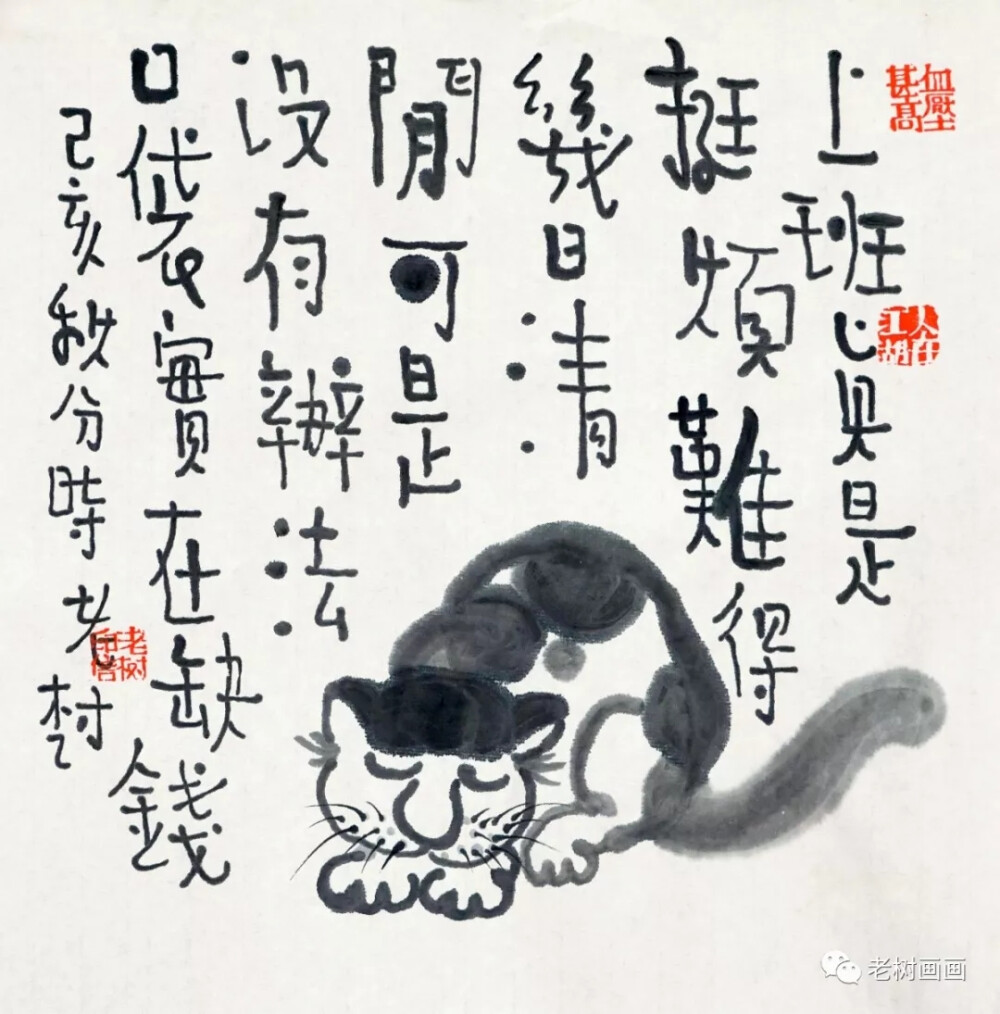 血壓甚高
上班眞是
人在江湖
挺煩難得
幾日清
閒可是
没有辦法
口袋實在缺錢
己亥秋分時老树
老树印信
老树画画